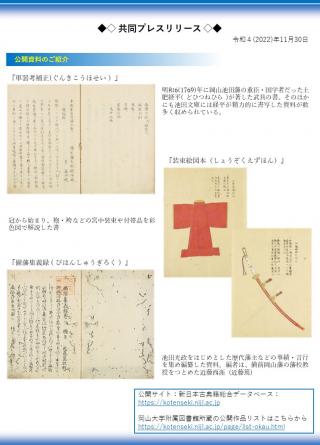 ◆◇ 共同プレスリリース ◇◆
令和４(2022)年11月30日
公開資料のご紹介
『軍器考補正(ぐんきこうほせい）』
明和6(1769)年に岡山池田藩の重臣・国学者だった土
肥経平( どひつねひら )が著した武具の書。そのほか
にも池田文庫には経平が精力的に書写した資料が数
多く収められている。
『装束絵図本（しょうぞくえずほん）』
冠から始まり、袍・袴などの宮中装束や付帯品を彩
色図で解説した書
『備藩集義録 ( びはんしゅうぎろく ) 』
池田光政をはじめとした歴代藩主などの事績・言行
を集め編纂した資料。編者は、備前岡山藩の藩校教
授をつとめた近藤西涯（近藤篤）
公開サイト：新日本古典籍総合データベース：
https://kotenseki.nijl.ac.jp
岡山大学附属図書館所蔵の公開作品リストはこちらから
https://kotenseki.nijl.ac.jp/page/list-okau.html